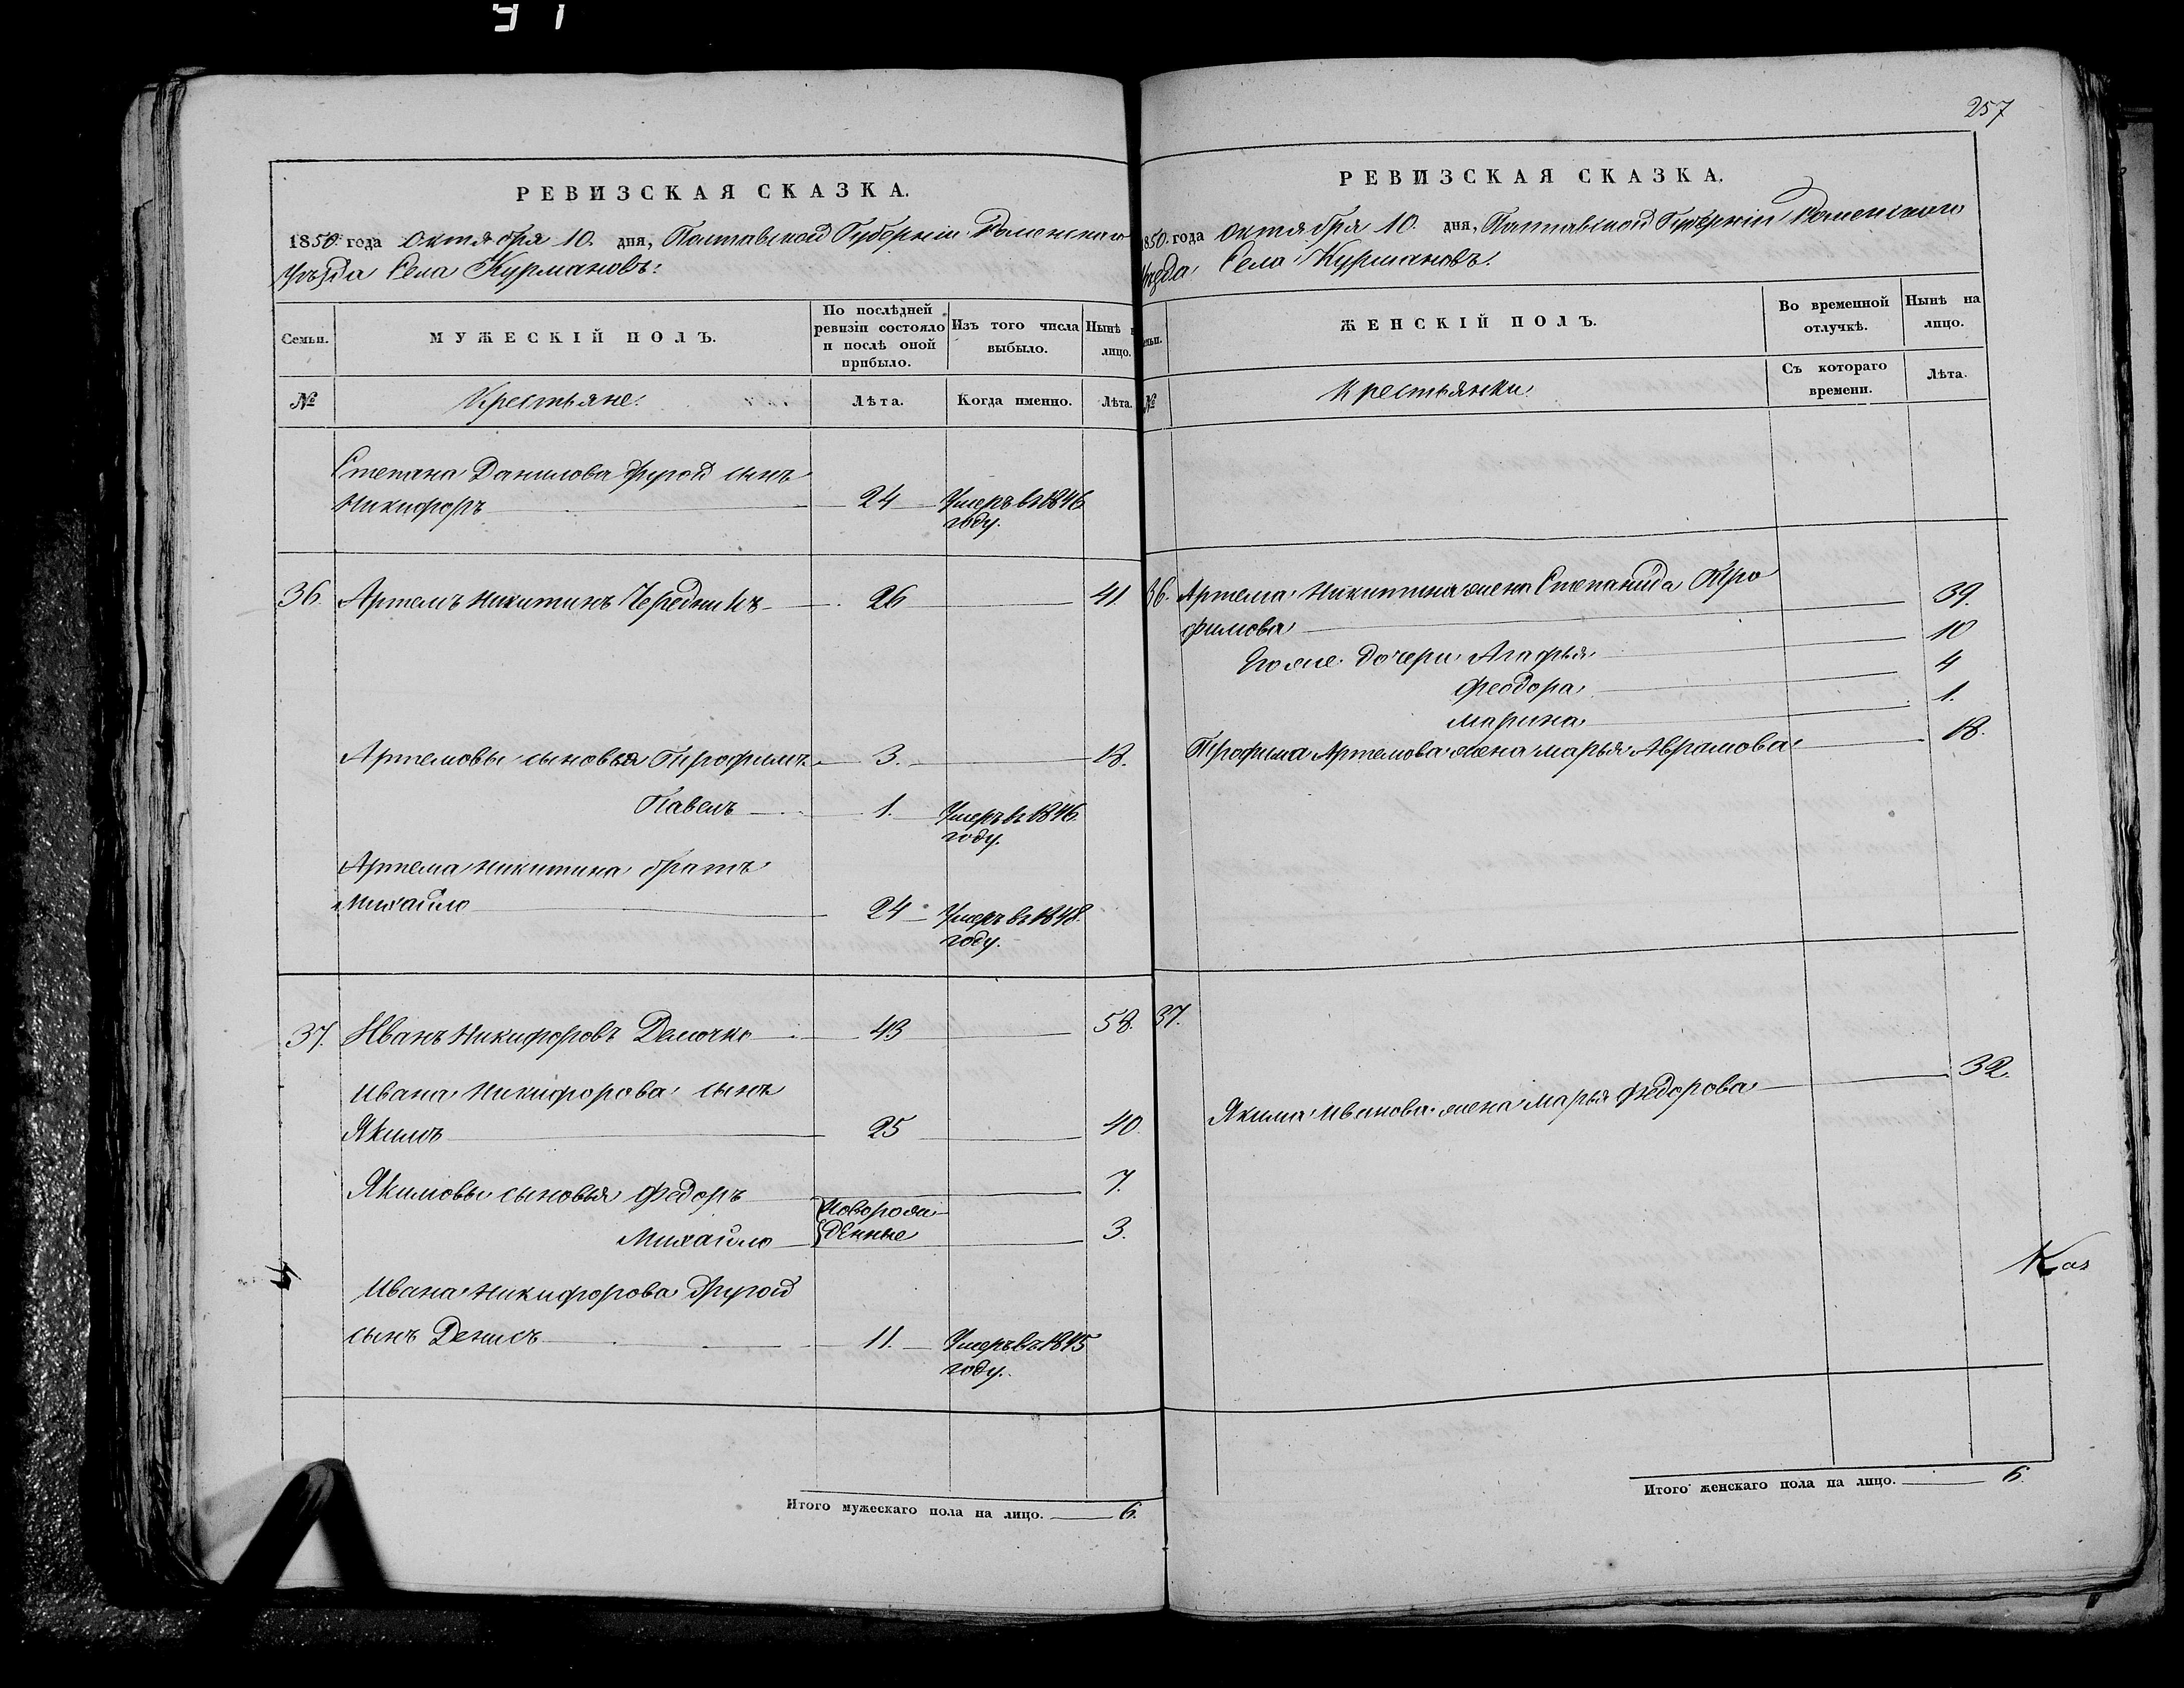 257
РЕВИЗСКАЯ СКАЗКА.
1850 года Октября 10. дня, Полтавской Губерніи Роменскаго
Уѣзда Села Курмановъ.
Семьи.
МУЖЕСКІЙ ПОЛЪ.
По послѣдней
ревизіи состояло
и послѣ оной
прибыло.
Изъ того числа
выбыло.
Нынѣ
лицо.
№
Крестьяне.
Лѣта.
Когда именно.
Лѣта.
Степана Данилова другой сынъ
Никифоръ 24 Умеръ въ 1846
году.
36. Артемъ Никитинъ Чередникъ 26 41.
Артемовы сыновья Трофимъ 3. 18.
Павелъ 1. Умеръ въ 1846
году.
Артема Никитина братъ
Михайло 24 Умеръ въ 1848.
году.
37. Иванъ Никифоровъ Демочко 43 58.
Ивана Никифорова сынъ
Якимъ 25 40.
Якимовы сыновья Федоръ 7.
Новорож-
Михайло денные 3.
Ивана Никифорова другой
сынъ Денисъ 11. Умеръ въ 1845
году.
Итого мужескаго пола на лицо. 6.
РЕВИЗСКАЯ СКАЗКА.
1850. года Октября 10. дня, Полтавской Губерніи Роменскаго
Уѣзда, Села Курмановъ.
ЖЕНСКІЙ ПОЛЪ.
Во временной
отлучкѣ.
Нынѣ на
лицо.
№
Крестьянки.
Съ котораго
времени.
Лѣта.
36. Артема Никитина жена Степанида Тро
фимова 39.
Его же дочери Агафья 10
Феодора 4
Марина 1.
Трофима Артемова жена Марья Аврамова 18.
37.
Якима Иванова жена Марья Федорова 32.
Итого женскаго пола на лицо. 6.